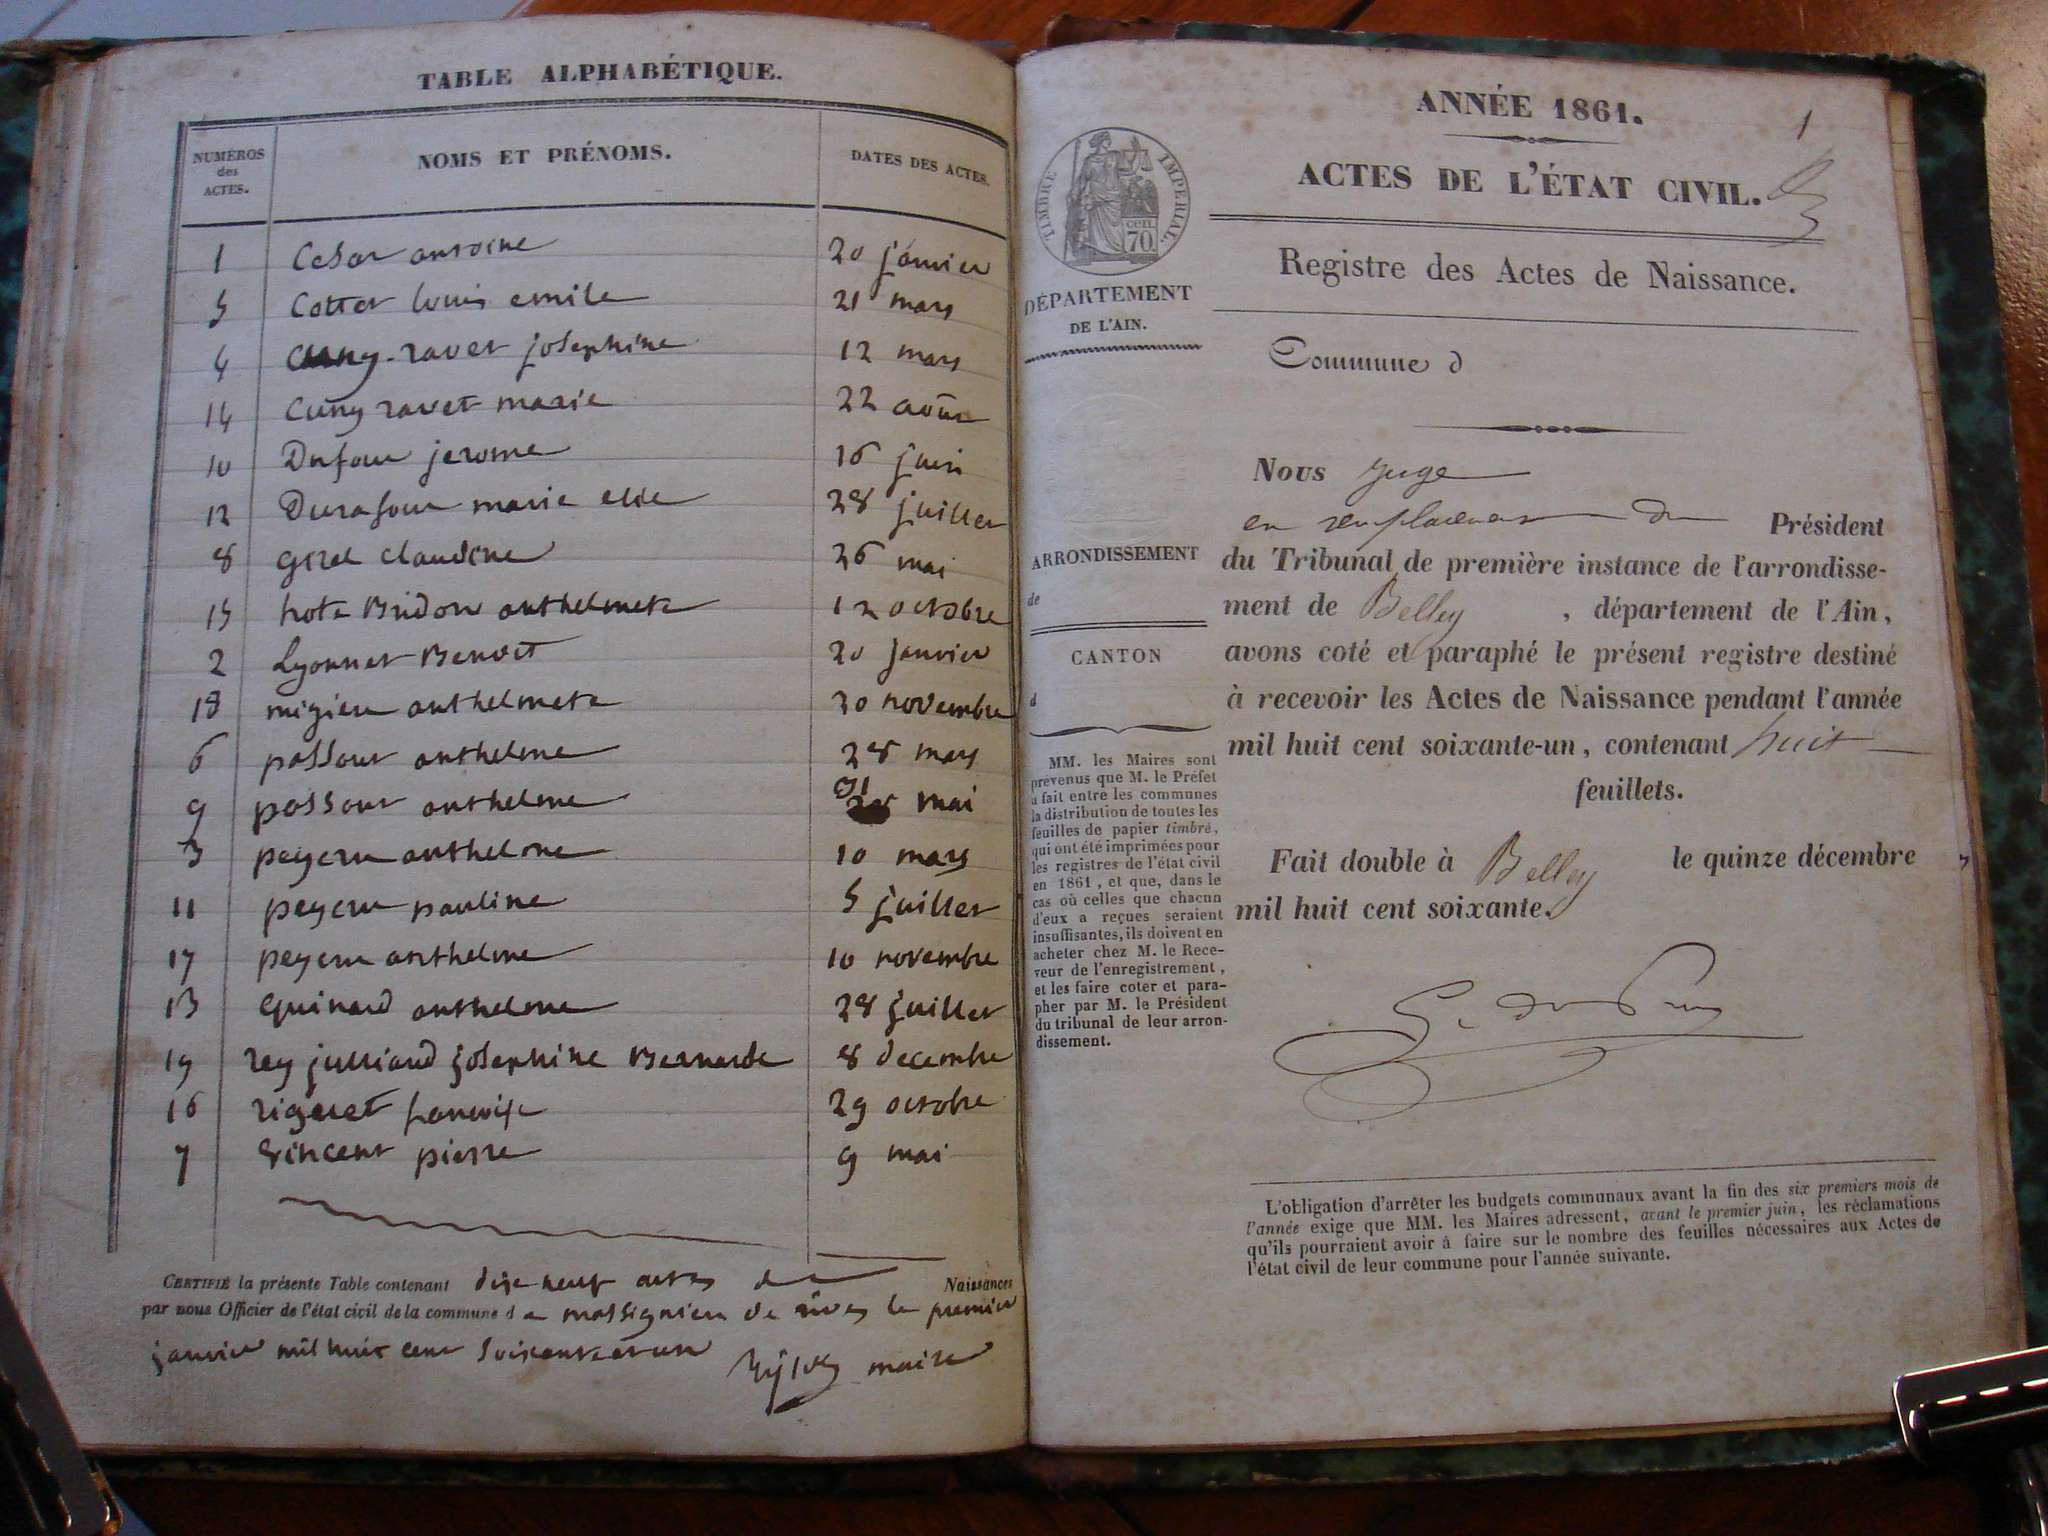 TABLE ALPHABÉTIQUE.
NUMÉROS des ACTES. NOMS ET PRÉNOMS. DATES DES ACTES.
1 Cesar antoine 20 janvier
5 Cottet louis emile 21 mars
4 Cuny-ravet josephine 12 mars
14 Cuny ravet marie 22 août
10 Dufour jerome 16 juin
12 Durafour marie elise 28 juillet
8 girel claudine 26 mai
15 hote Bridon anthelmete 12 octobre
2 Lyonnet Benoit 20 janvier
18 migieu anthelmete 30 novembre
6 passout anthelme 28 mars
9 possout anthelme 31 mai
3 peyeru anthelme 10 mars
11 peyeru pauline 5 juillet
17 peyeru anthelme 10 novembre
13 Quinard anthelme 28 juillet
19 rey julliand josephine Bernarde 8 decembre
16 rigolet 29 octobre
7 Vincent pierre 9 mai
CERTIFIÉ la présente Table contenant dix neuf actes de Naissances
par nous Officier de l'état civil de la commune de massignieu de rives le premier
janvier mil huit cent soixante et un maire
ANNÉE 1861.
1
ACTES DE L'ÉTAT CIVIL.
Registre des Actes de Naissance.
TIMBRE IMPÉRIAL
cen. 70.
DÉPARTEMENT
DE L'AIN.
Commune d
Nous Juge
en remplacement du Président
du Tribunal de première instance de l'arrondisse-
ment de Belley , département de l'Ain,
avons coté et paraphé le présent registre destiné
à recevoir les Actes de Naissance pendant l'année
mil huit cent soixante-un, contenant huit
feuillets.
Fait double à Belley le quinze décembre
mil huit cent soixante.
ARRONDISSEMENT
de
CANTON
d
MM. les Maires sont
prévenus que M. le Préfet
a fait entre les communes
la distribution de toutes les
feuilles de papier timbré,
qui ont été imprimées pour
les registres de l'état civil
en 1861, et que, dans le
cas où celles que chacun
d'eux a reçues seraient
insuffisantes, ils doivent en
acheter chez M. le Rece-
veur de l'enregistrement,
et les faire coter et para-
pher par M. le Président
du tribunal de leur arron-
dissement.
L'obligation d'arrêter les budgets communaux avant la fin des six premiers mois de
l'année exige que MM. les Maires adressent, avant le premier juin, les réclamations
qu'ils pourraient avoir à faire sur le nombre des feuilles nécessaires aux Actes de
l'état civil de leur commune pour l'année suivante.